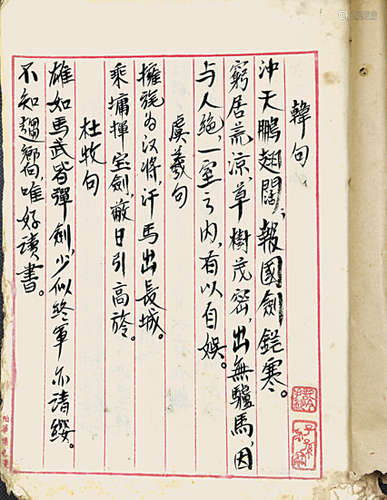 韓句
沖天鵬翅闊，報國劍鋩寒。
窮居荒涼，草樹茂密，出無驢馬，因
与人絕，一室之內，有以自娛。
虞羲句
擁旄為汉將，汗馬出長城。
乘墉揮宝劍，蔽日引高旍。
杜牧句
雄如馬武皆彈劍，少似終軍亦請纓。
不知趨嚮唯好读書。